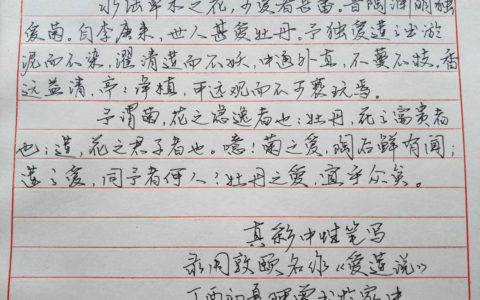 水陆草木之花，可爱者甚蕃。晋陶渊明独
爱菊。自李唐来，世人甚爱牡丹。予独爱莲之出淤
泥而不染，濯清涟而不妖，中通外直，不蔓不枝，香
远益清，亭亭净植，可远观而不可亵玩焉。
予谓菊，花之隐逸者也；牡丹，花之富贵者
也；莲，花之君子者也。噫！菊之爱，陶后鲜有闻；
莲之爱，同予者何人？牡丹之爱，宜乎众矣。
真彩中性笔写
录周敦颐名作《爱莲说》
丁酉初夏